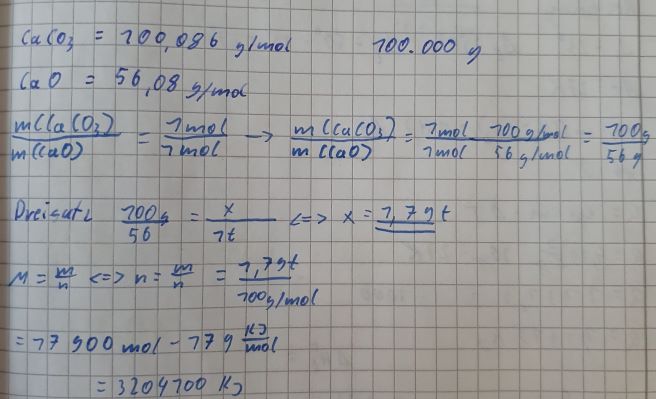 CaCO₃ = 100,086 g/mol 100.000 g
CaO = 56,08 g/mol
m(CaCO₃)/m(CaO) = 1mol/1mol → m(CaCO₃)/m(CaO) = 1mol 100g/mol/1mol 56g/mol = 100g/56g
Dreisatz 100g/56 = x/1t <=> x = 1,79t
M = m/n <=> n = m/n = 1,79t/100g/mol
= 17900 mol - 179 KJ/mol
= 3204100 KJ